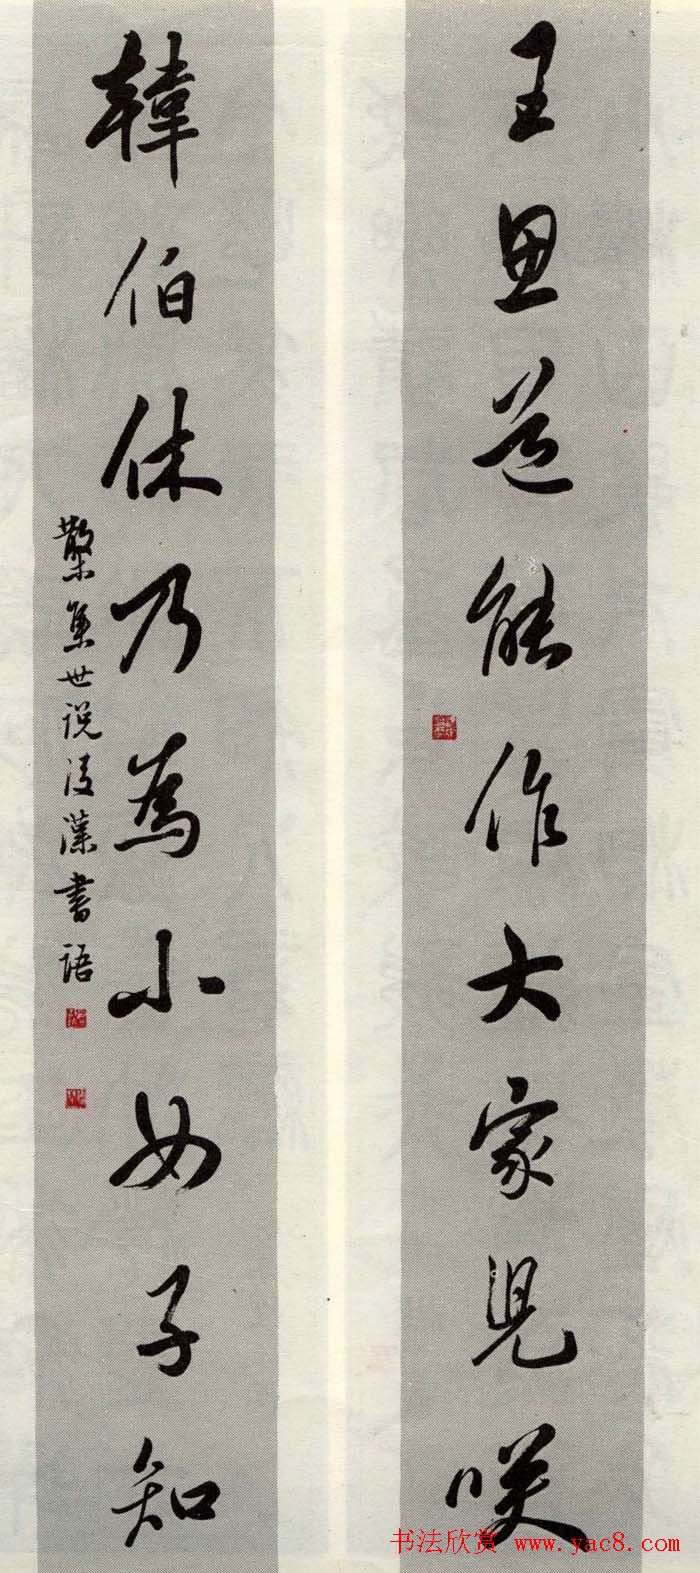 王思道能作大家兒咲
韓伯休乃為小女子知
槃集世说後漢書语
书法欣赏 www.yac8.com